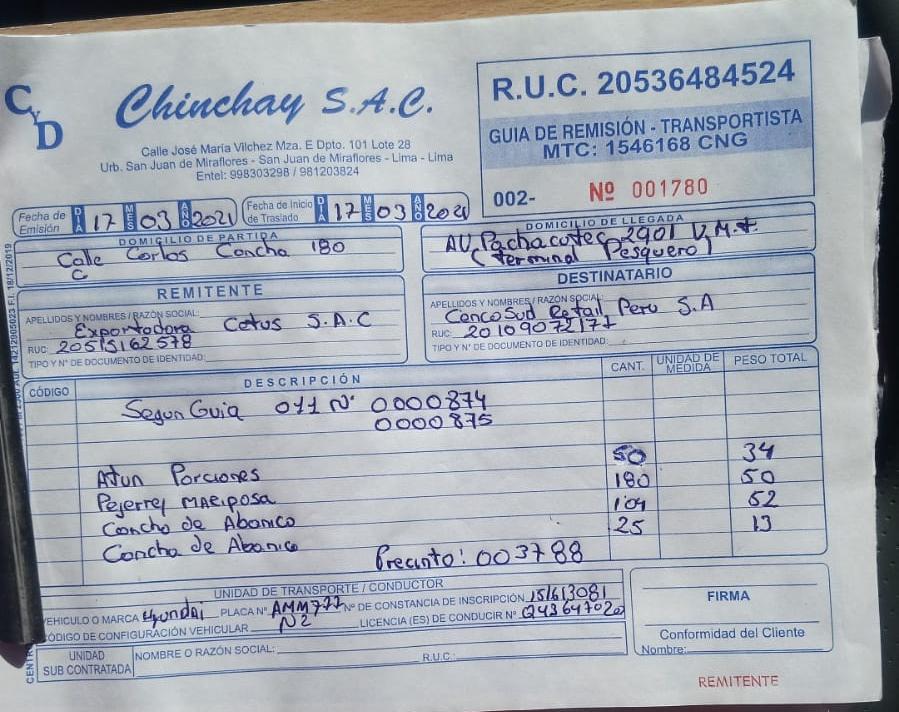 CyD
Chinchay S.A.C.
Calle José María Vilchez Mza. E Dpto. 101 Lote 28
Urb. San Juan de Miraflores - San Juan de Miraflores - Lima - Lima
Entel: 998303298 / 981203824
R.U.C. 20536484524
GUIA DE REMISIÓN - TRANSPORTISTA
MTC: 1546168 CNG
002- Nº 001780
Fecha de Emisión DIA 17 MES 03 AÑO 2021 Fecha de Inicio de Traslado DIA 17 MES 03 AÑO 2021
DOMICILIO DE PARTIDA
Calle Carlos Concha 180
C
DOMICILIO DE LLEGADA
AV. Pachacutec 2901 V.M.t
(terminal Pesquero)
REMITENTE
APELLIDOS Y NOMBRES / RAZÓN SOCIAL:
Exportadora Cetus S.A.C
RUC: 20515162578
TIPO Y Nº DE DOCUMENTO DE IDENTIDAD:
DESTINATARIO
APELLIDOS Y NOMBRES / RAZÓN SOCIAL:
CencoSud Retail Peru S.A
RUC: 20109072177
TIPO Y Nº DE DOCUMENTO DE IDENTIDAD:
CÓDIGO DESCRIPCIÓN CANT. UNIDAD DE MEDIDA PESO TOTAL
Segun Guia 011 Nº 0000874
0000875
Atun Porciones 50 34
Pejerrey MARiposa 180 50
Concha de Abanico 104 52
Concha de Abanico 25 13
Precinto: 003788
UNIDAD DE TRANSPORTE / CONDUCTOR
VEHICULO O MARCA Hyundai PLACA Nº AMM777 Nº DE CONSTANCIA DE INSCRIPCIÓN 151613081
CÓDIGO DE CONFIGURACIÓN VEHICULAR N2 LICENCIA (ES) DE CONDUCIR Nº Q43647020
UNIDAD SUB CONTRATADA NOMBRE O RAZÓN SOCIAL: R.U.C.:
FIRMA
Conformidad del Cliente
Nombre:
REMITENTE